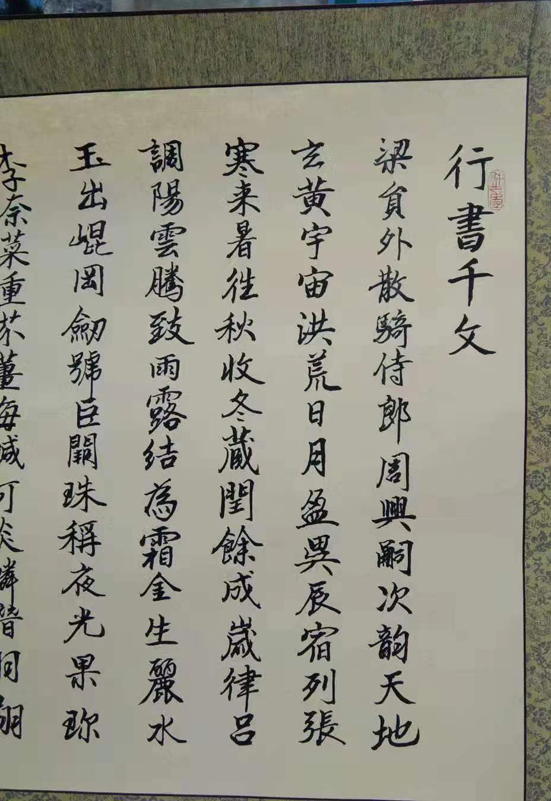 行書千文
梁員外散騎侍郎周興嗣次韵天地
玄黄宇宙洪荒日月盈昃辰宿列張
寒来暑往秋收冬藏閏餘成嵗律吕
調陽雲騰致雨露結為霜金生麗水
玉出崐岡劒號巨闕珠稱夜光果珎
李奈菜重芥薑海